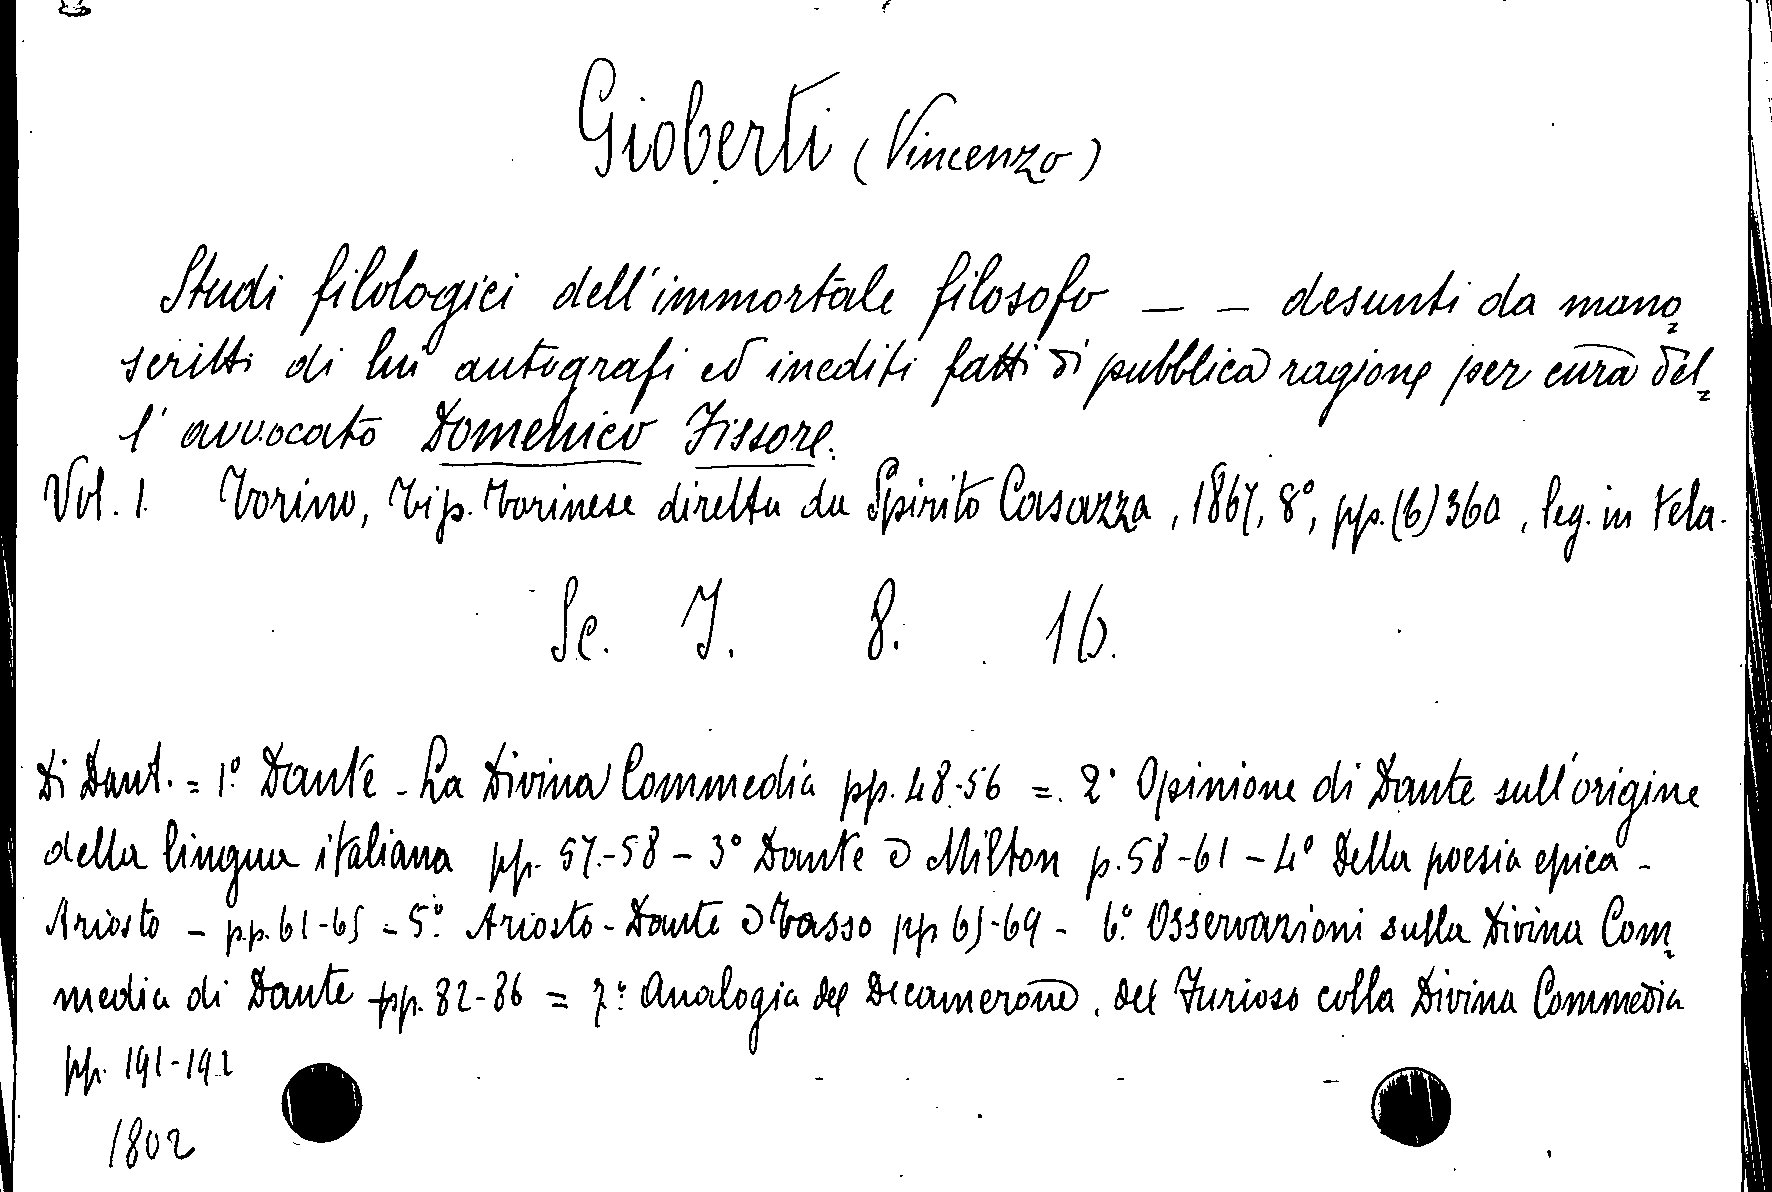 Gioberti (Vincenzo)
Studi filologici dell'immortale filosofo _ _ desunti da mano=
scritti di lui autografi ed inediti fatti di pubblica ragione per cura del=
l'avvocato Domenico Fissore.
Vol. 1. Torino, Tip. Torinese diretta da Spirito Casazza, 1867, 8°, pp. (6) 360, leg. in tela.
Sc. I. 8. 16.
Di Dant. = 1° Dante - La Divina Commedia pp. 48-56 = 2° Opinione di Dante sull'origine
della lingua italiana pp. 57-58 - 3° Dante e Milton p. 58-61 - 4° Della poesia epica -
Ariosto - pp. 61-65 = 5° Ariosto - Dante e Tasso pp 65-69 - 6° Osservazioni sulla Divina Com=
media di Dante pp. 82-86 = 7° Analogia del Decamerone, del Furioso colla Divina Commedia
pp. 191-192
1802